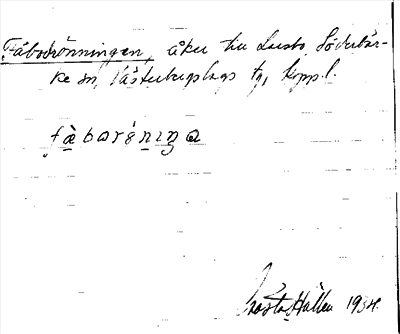 Fäbodrönningen, åker till Lusbo, Söderbär-
ke sn, Västerbergslags tg, Kopp. l.
fäbarö̀niŋa
Gösta Hallén 1934.